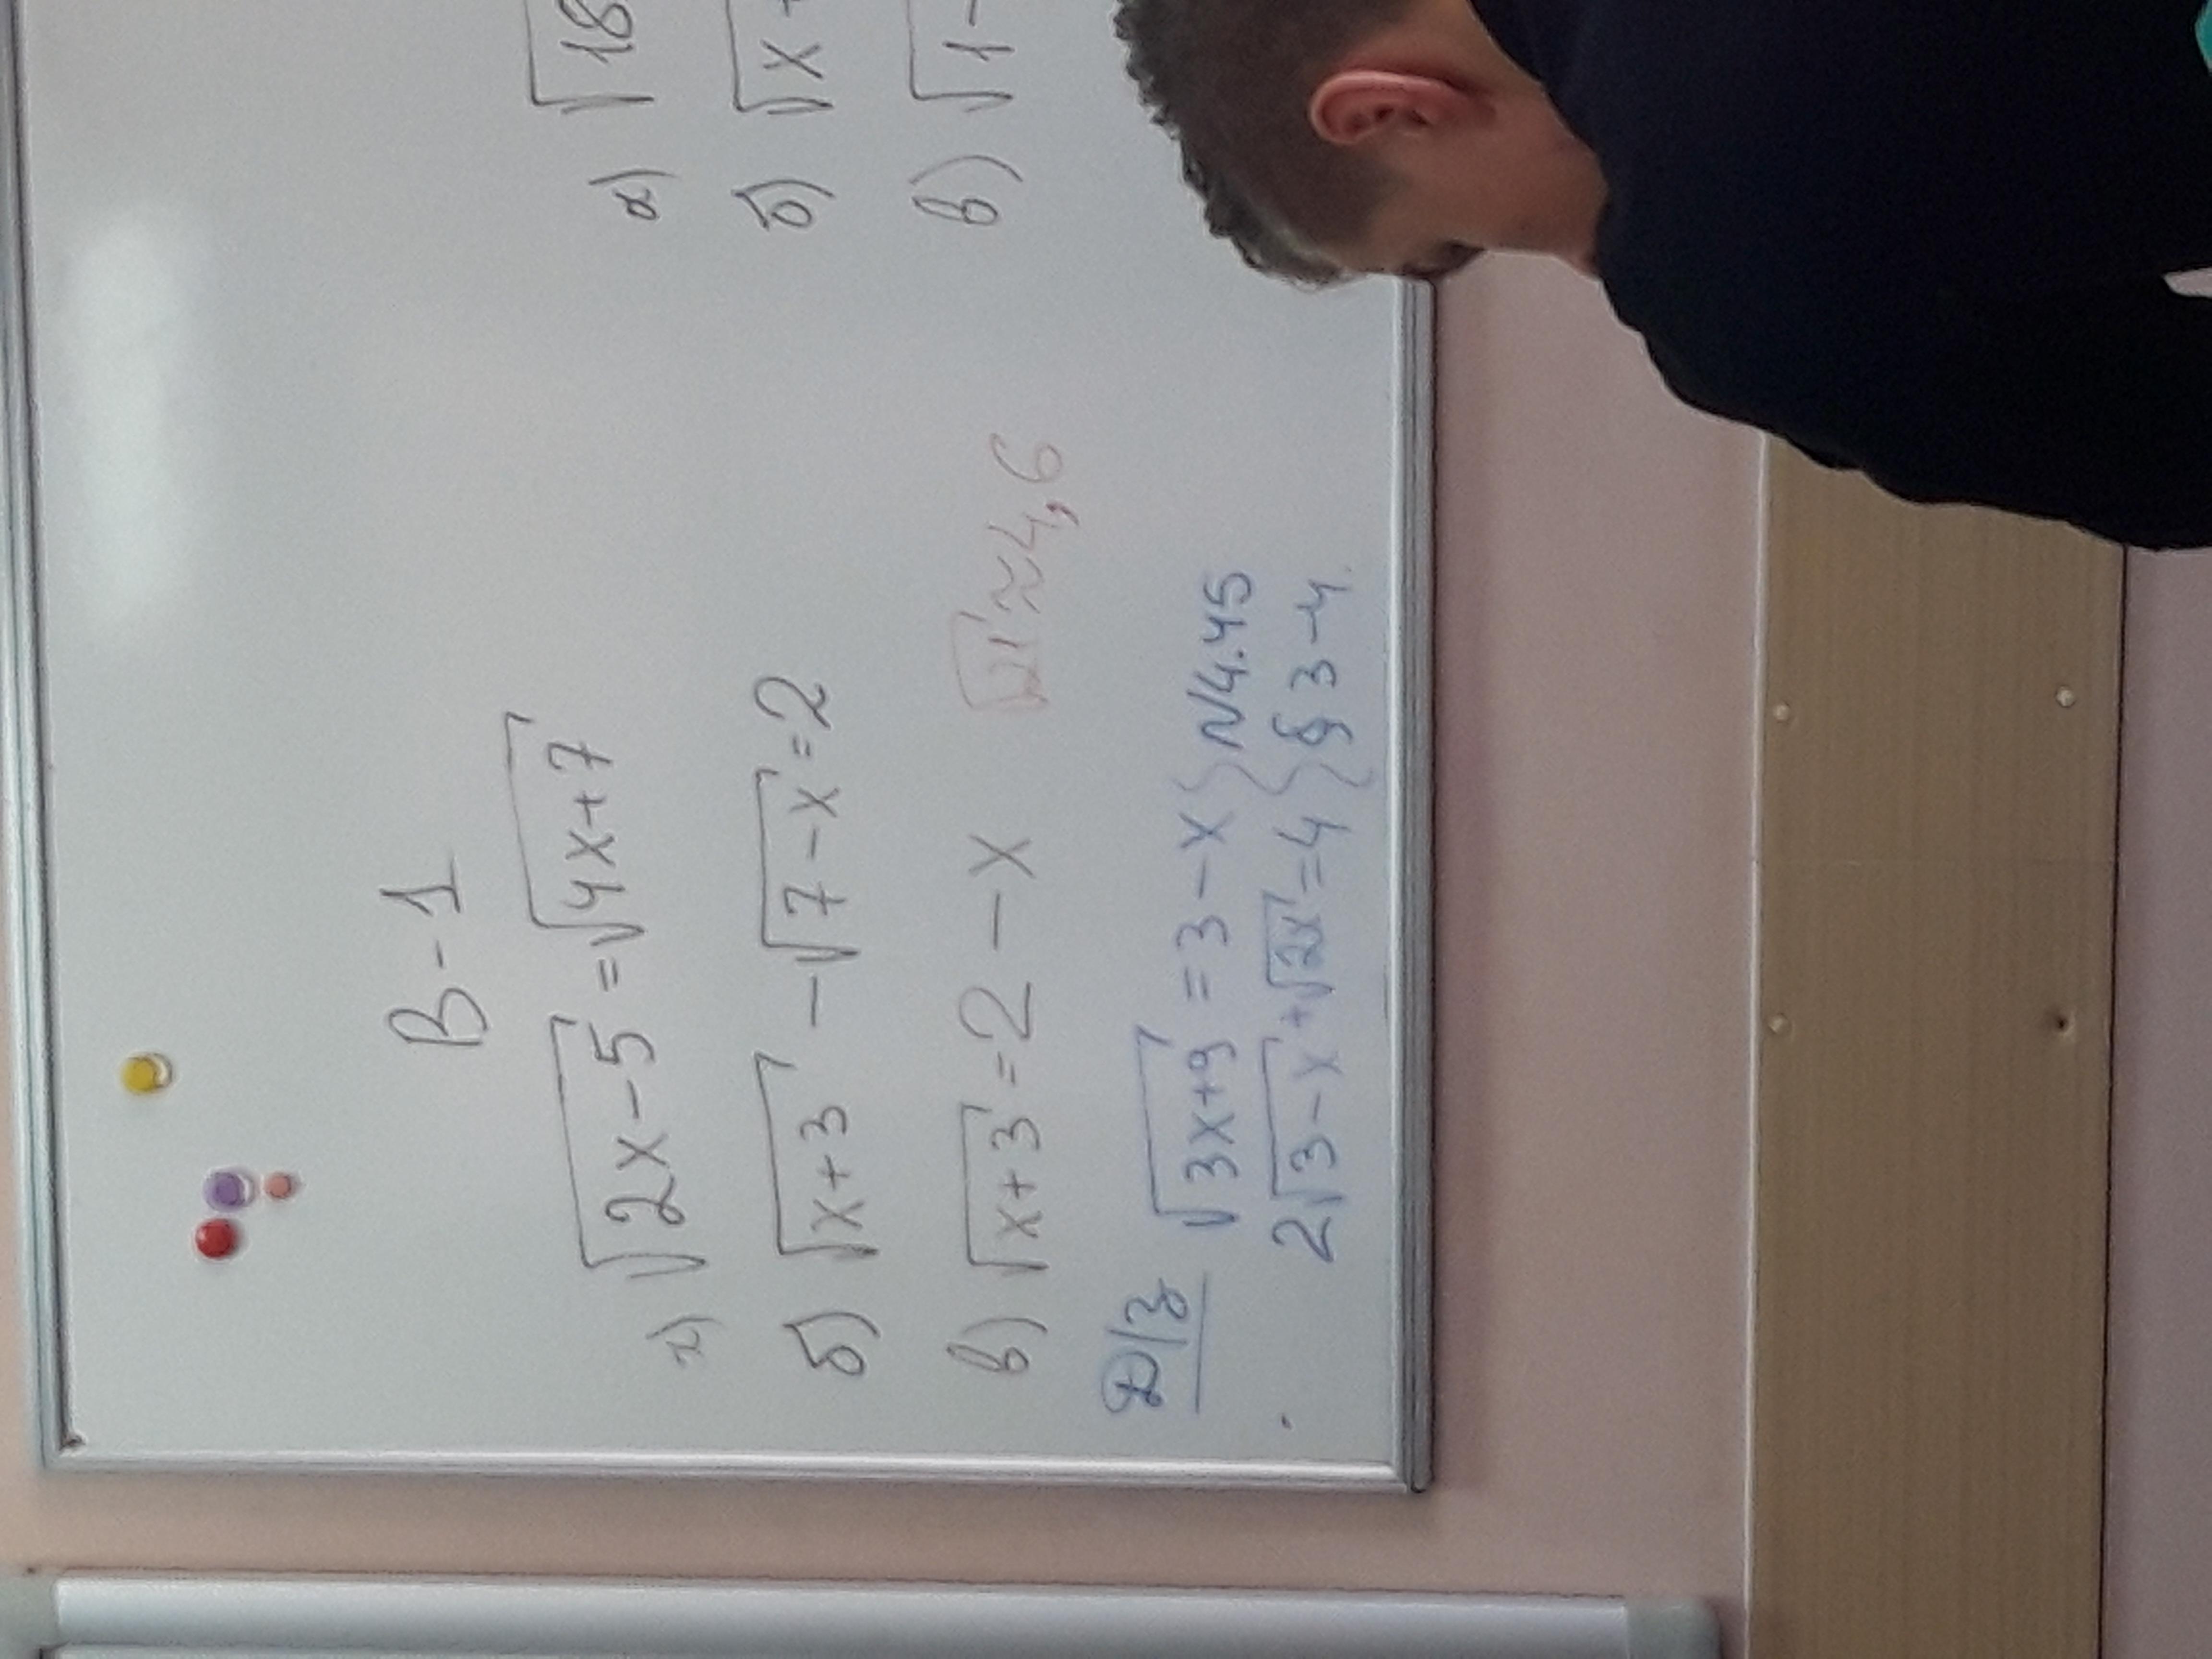 В-1
а) √2x-5 = √4x+7
б) √x+3 - √7-x = 2
в) √x+3 = 2-x
√21 ≈ 4,6
Д/з √3x+9 = 3-x } N4.45
2√3-x + √2x = 4 } § 3-4
а) √18
б) √x+
в) √1-